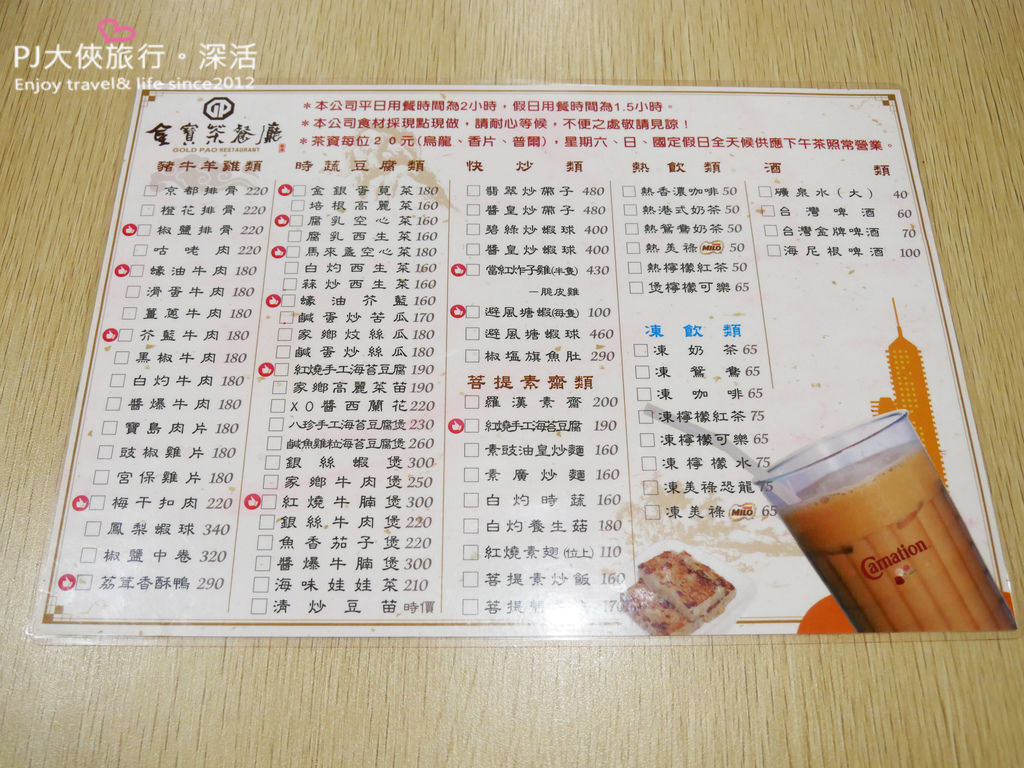 PJ大俠旅行。深活
Enjoy travel& life since2012
金寶茶餐廳
GOLD PAO RESTAURANT
＊本公司平日用餐時間為2小時，假日用餐時間為1.5小時。
＊本公司食材採現點現做，請耐心等候，不便之處敬請見諒！
＊茶資每位20元(烏龍、香片、普爾)，星期六、日、國定假日全天候供應下午茶照常營業。
豬牛羊雞類
京都排骨 220
橙花排骨 220
椒鹽排骨 220
咕咾肉 220
蠔油牛肉 180
滑蛋牛肉 180
薑蔥牛肉 180
芥藍牛肉 180
黑椒牛肉 180
白灼牛肉 180
醬爆牛肉 180
寶島肉片 180
豉椒雞片 180
宮保雞片 180
梅干扣肉 220
鳳梨蝦球 340
椒鹽中卷 320
荔茸香酥鴨 290
時蔬豆腐類
金銀蛋莧菜 180
培根高麗菜 160
腐乳空心菜 160
腐乳西生菜 160
馬來盞空心菜 180
白灼西生菜 160
蒜炒西生菜 160
蠔油芥藍 160
鹹蛋炒苦瓜 170
家鄉炆絲瓜 180
鹹蛋炒絲瓜 180
紅燒手工海苔豆腐 190
家鄉高麗菜苗 190
XO醬西蘭花 220
八珍手工海苔豆腐煲 230
鹹魚雞粒海苔豆腐煲 260
銀絲蝦煲 300
家鄉牛肉煲 250
紅燒牛腩煲 300
銀絲牛肉煲 220
魚香茄子煲 220
醬爆牛腩煲 300
海味娃娃菜 210
清炒豆苗 時價
快炒類
翡翠炒帶子 480
醬皇炒帶子 480
碧綠炒蝦球 400
醬皇炒蝦球 400
當紅炸子雞(半隻) 430
－脆皮雞
避風塘蝦(每隻) 100
避風塘蝦球 460
椒塩旗魚肚 290
菩提素齋類
羅漢素齋 200
紅燒手工海苔豆腐 190
素豉油皇炒麵 160
素廣炒麵 160
白灼時蔬 160
白灼養生菇 180
紅燒素翅(位上) 110
菩提素炒飯 160
菩提 170
熱飲類
熱香濃咖啡 50
熱港式奶茶 50
熱鴛鴦奶茶 50
熱美祿 MILO 50
熱檸檬紅茶 50
煲檸檬可樂 65
凍飲類
凍奶茶 65
凍鴛鴦 65
凍咖啡 65
凍檸檬紅茶 75
凍檸檬可樂 65
凍檸檬水 75
凍美祿恐龍 75
凍美祿 MILO 65
酒類
礦泉水(大) 40
台灣啤酒 60
台灣金牌啤酒 70
海尼根啤酒 100
Carnation